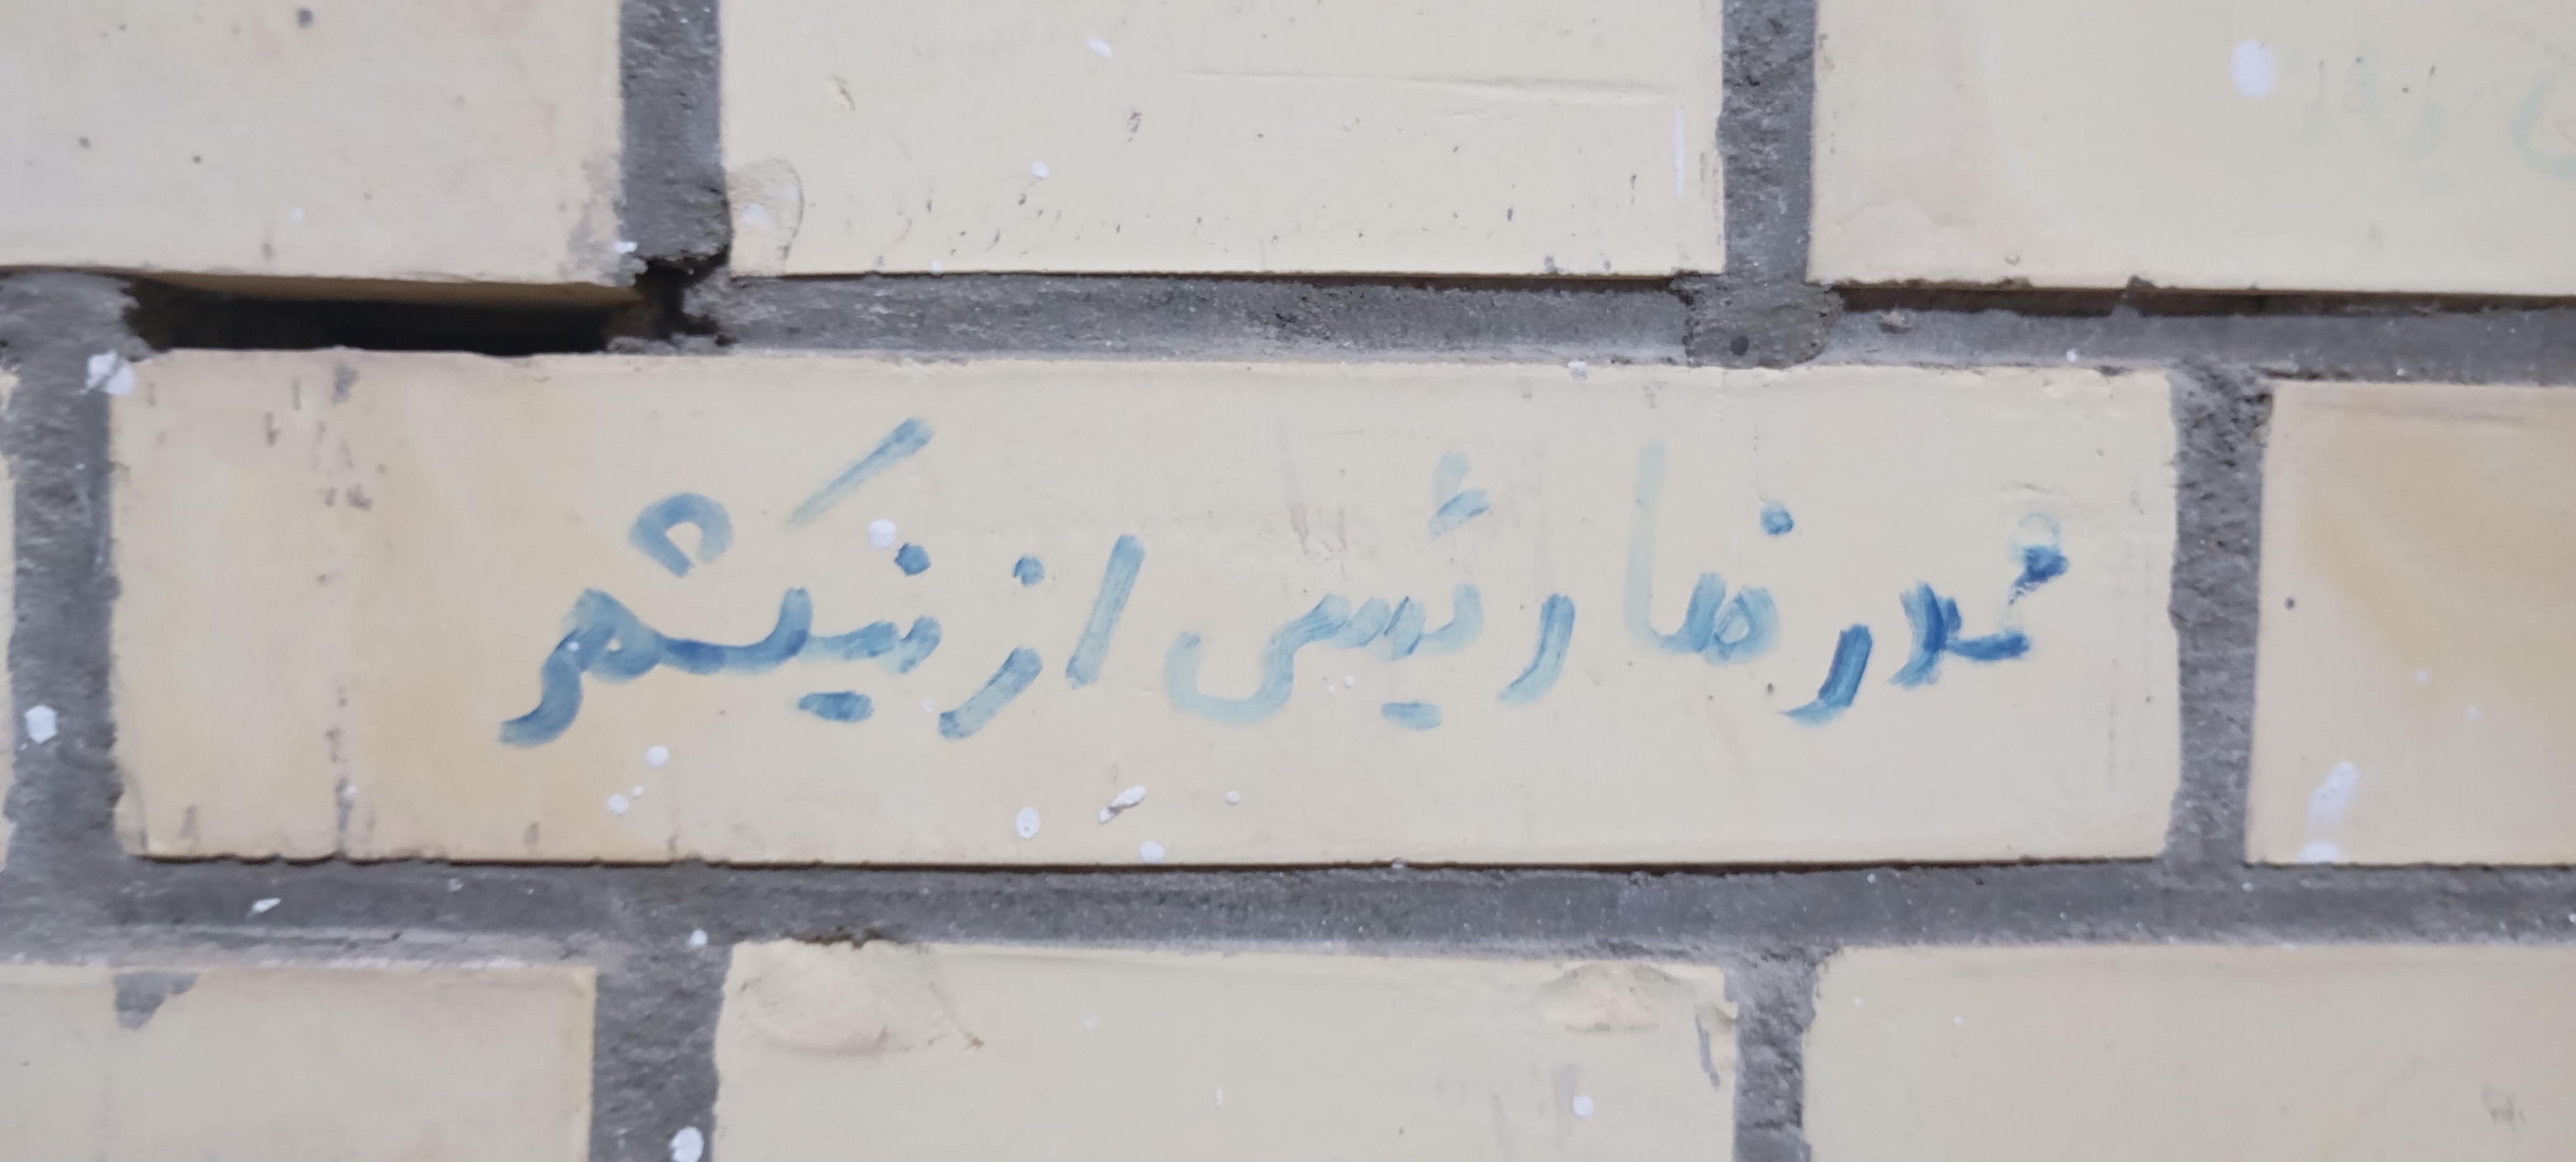 محمدرضا رئیسی از نیکشهر